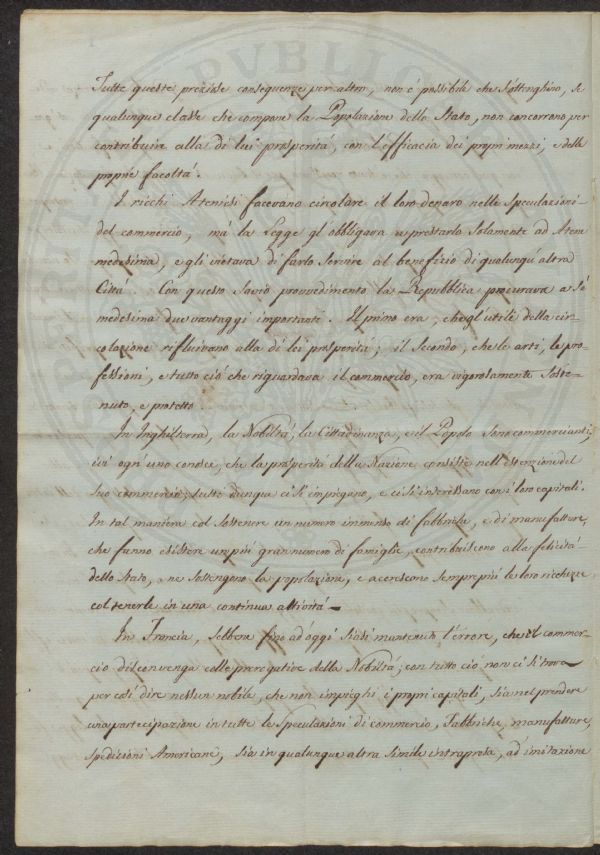 Tutte queste preziose conseguenze per altro, non è possibile che s'ottenghino, se
qualunque classe che compone la Popolazione dello Stato, non concorrono per
contribuire alla di lui prosperità, con l'efficacia dei proprj mezzi, e delle
proprie facoltà.
I ricchi Ateniesi facevano circolare il loro denaro nelle speculazioni
del commercio, mà la Legge gl'obbligava a prestarlo solamente ad Atene
medesima, e gli vietava di farlo servire al beneficio di qualunqu'altra
Città. Con questo savio provvedimento la Repubblica procurava a sé
medesima due vantaggi importanti. Il primo era, che gl'utili della cir-
colazione rifluivano alla di lei prosperità; il secondo, che le arti, le pro-
fessioni, e tutto ciò che riguardava il commercio, era vigorosamente soste-
nuto, e protetto
In Inghilterra, la Nobiltà, la Cittadinanza, e il Popolo sono commercianti,
ivi ogn'uno conosce, che la prosperità della Nazione consiste nell'estenzione del
suo commercio; tutti dunque ci s'impiegano, e ci s'interessano con i loro capitali.
In tal maniera col sostenere un numero immenso di fabbriche, e di manufatture,
che fanno esistere un più gran numero di famiglie, contribuiscono alla felicità
dello Stato, ne sostengono la popolazione, e accrescono sempre più le loro ricchezze
col tenerle in una continua attività —
In Francia, sebbene fino ad oggi siasi mantenuto l'errore, che il commer-
cio disconvenga colle prerogative della Nobiltà; con tutto ciò non ci si trova
per così dire nessun nobile, che non impieghi i proprj capitali, sia nel prendere
una partecipazione in tutte le speculazioni di commercio, fabbriche, manufatture,
spedizioni Americane, sia in qualunque altra simile intrapresa, ad imitazione